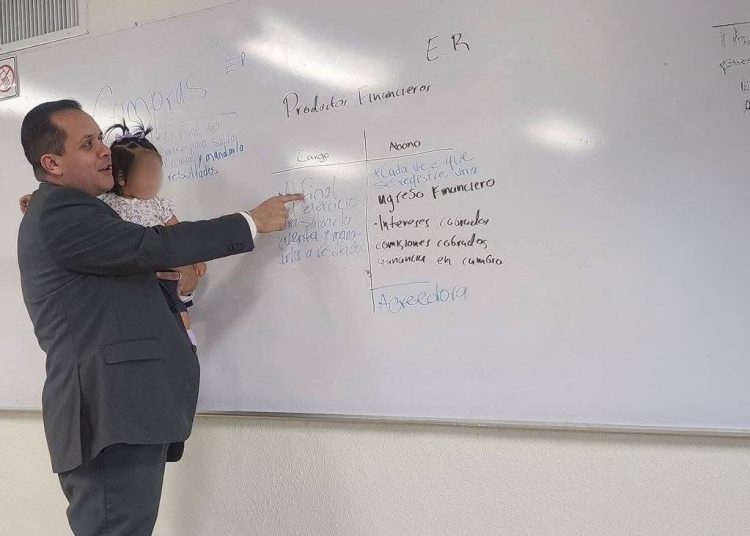 Compras
E R
resultados
y mandarla
E.R
Productos Financieros
Cargo
Abono
*Al final
del ejercicio
para saldar la
cuenta y mand-
arla a resultados
*Cada vez que
se registre una
ingreso Financiero.
-Intereses cobrados
comisiones cobrados
Ganancia en cambio
Acreedora